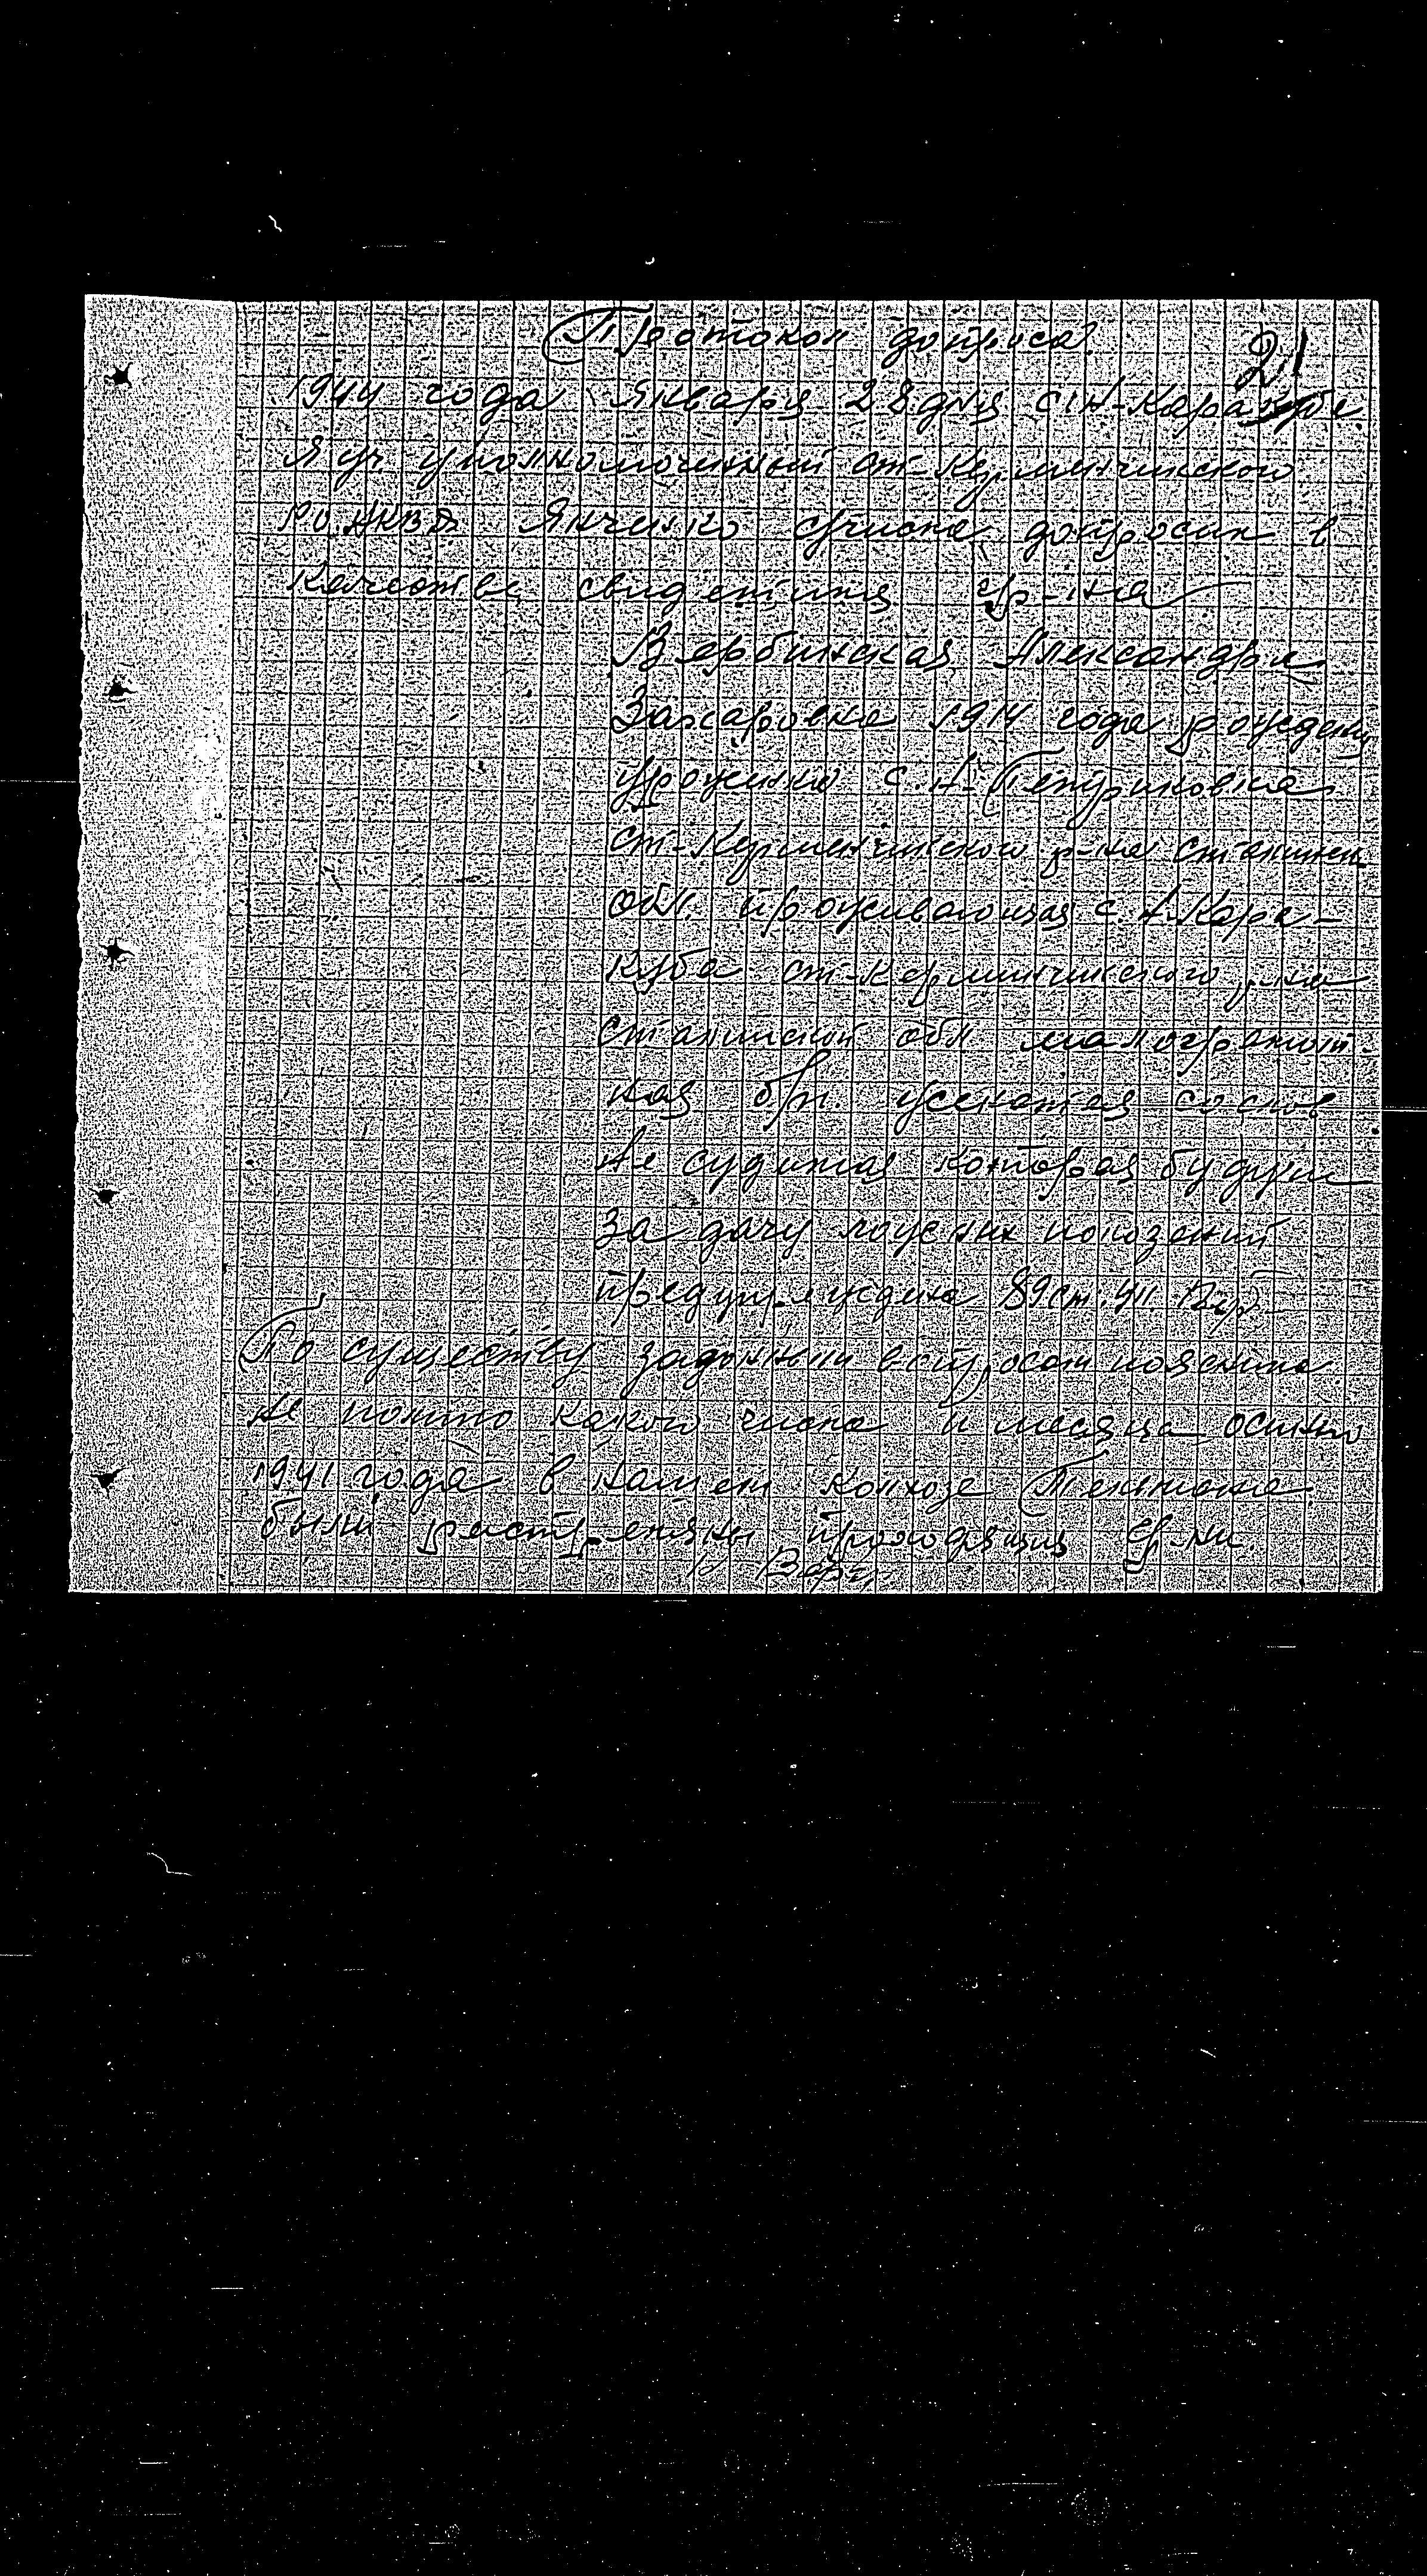 Протокол допроса
21
1944 года Января 28 дня с. Н-Каракуба
Я уч уполномоченный ст-Керменчикского
РО НКВД Янченко счисла допросил в
качестве свидетиля гр-на
Вербинская Александра
Захаровна 1914 года рожден
урожен с. Н-Петриковка
ст-Керменчикского р-на Сталин
обл. проживающая с. Н-Кара-
куба ст-Керменчикского р-на
сталинской обл малограмот-
ная б/п. со слов
не судимая которая будучи
за дачу показаний
предупреждена 89 ст. УК Верб
По существу заданным вопросам пояснила
не помню какого числа и месяца осенью
1941 года в нашем колхозе Тельмана
были растреляны проходящия гр-ни
Верб